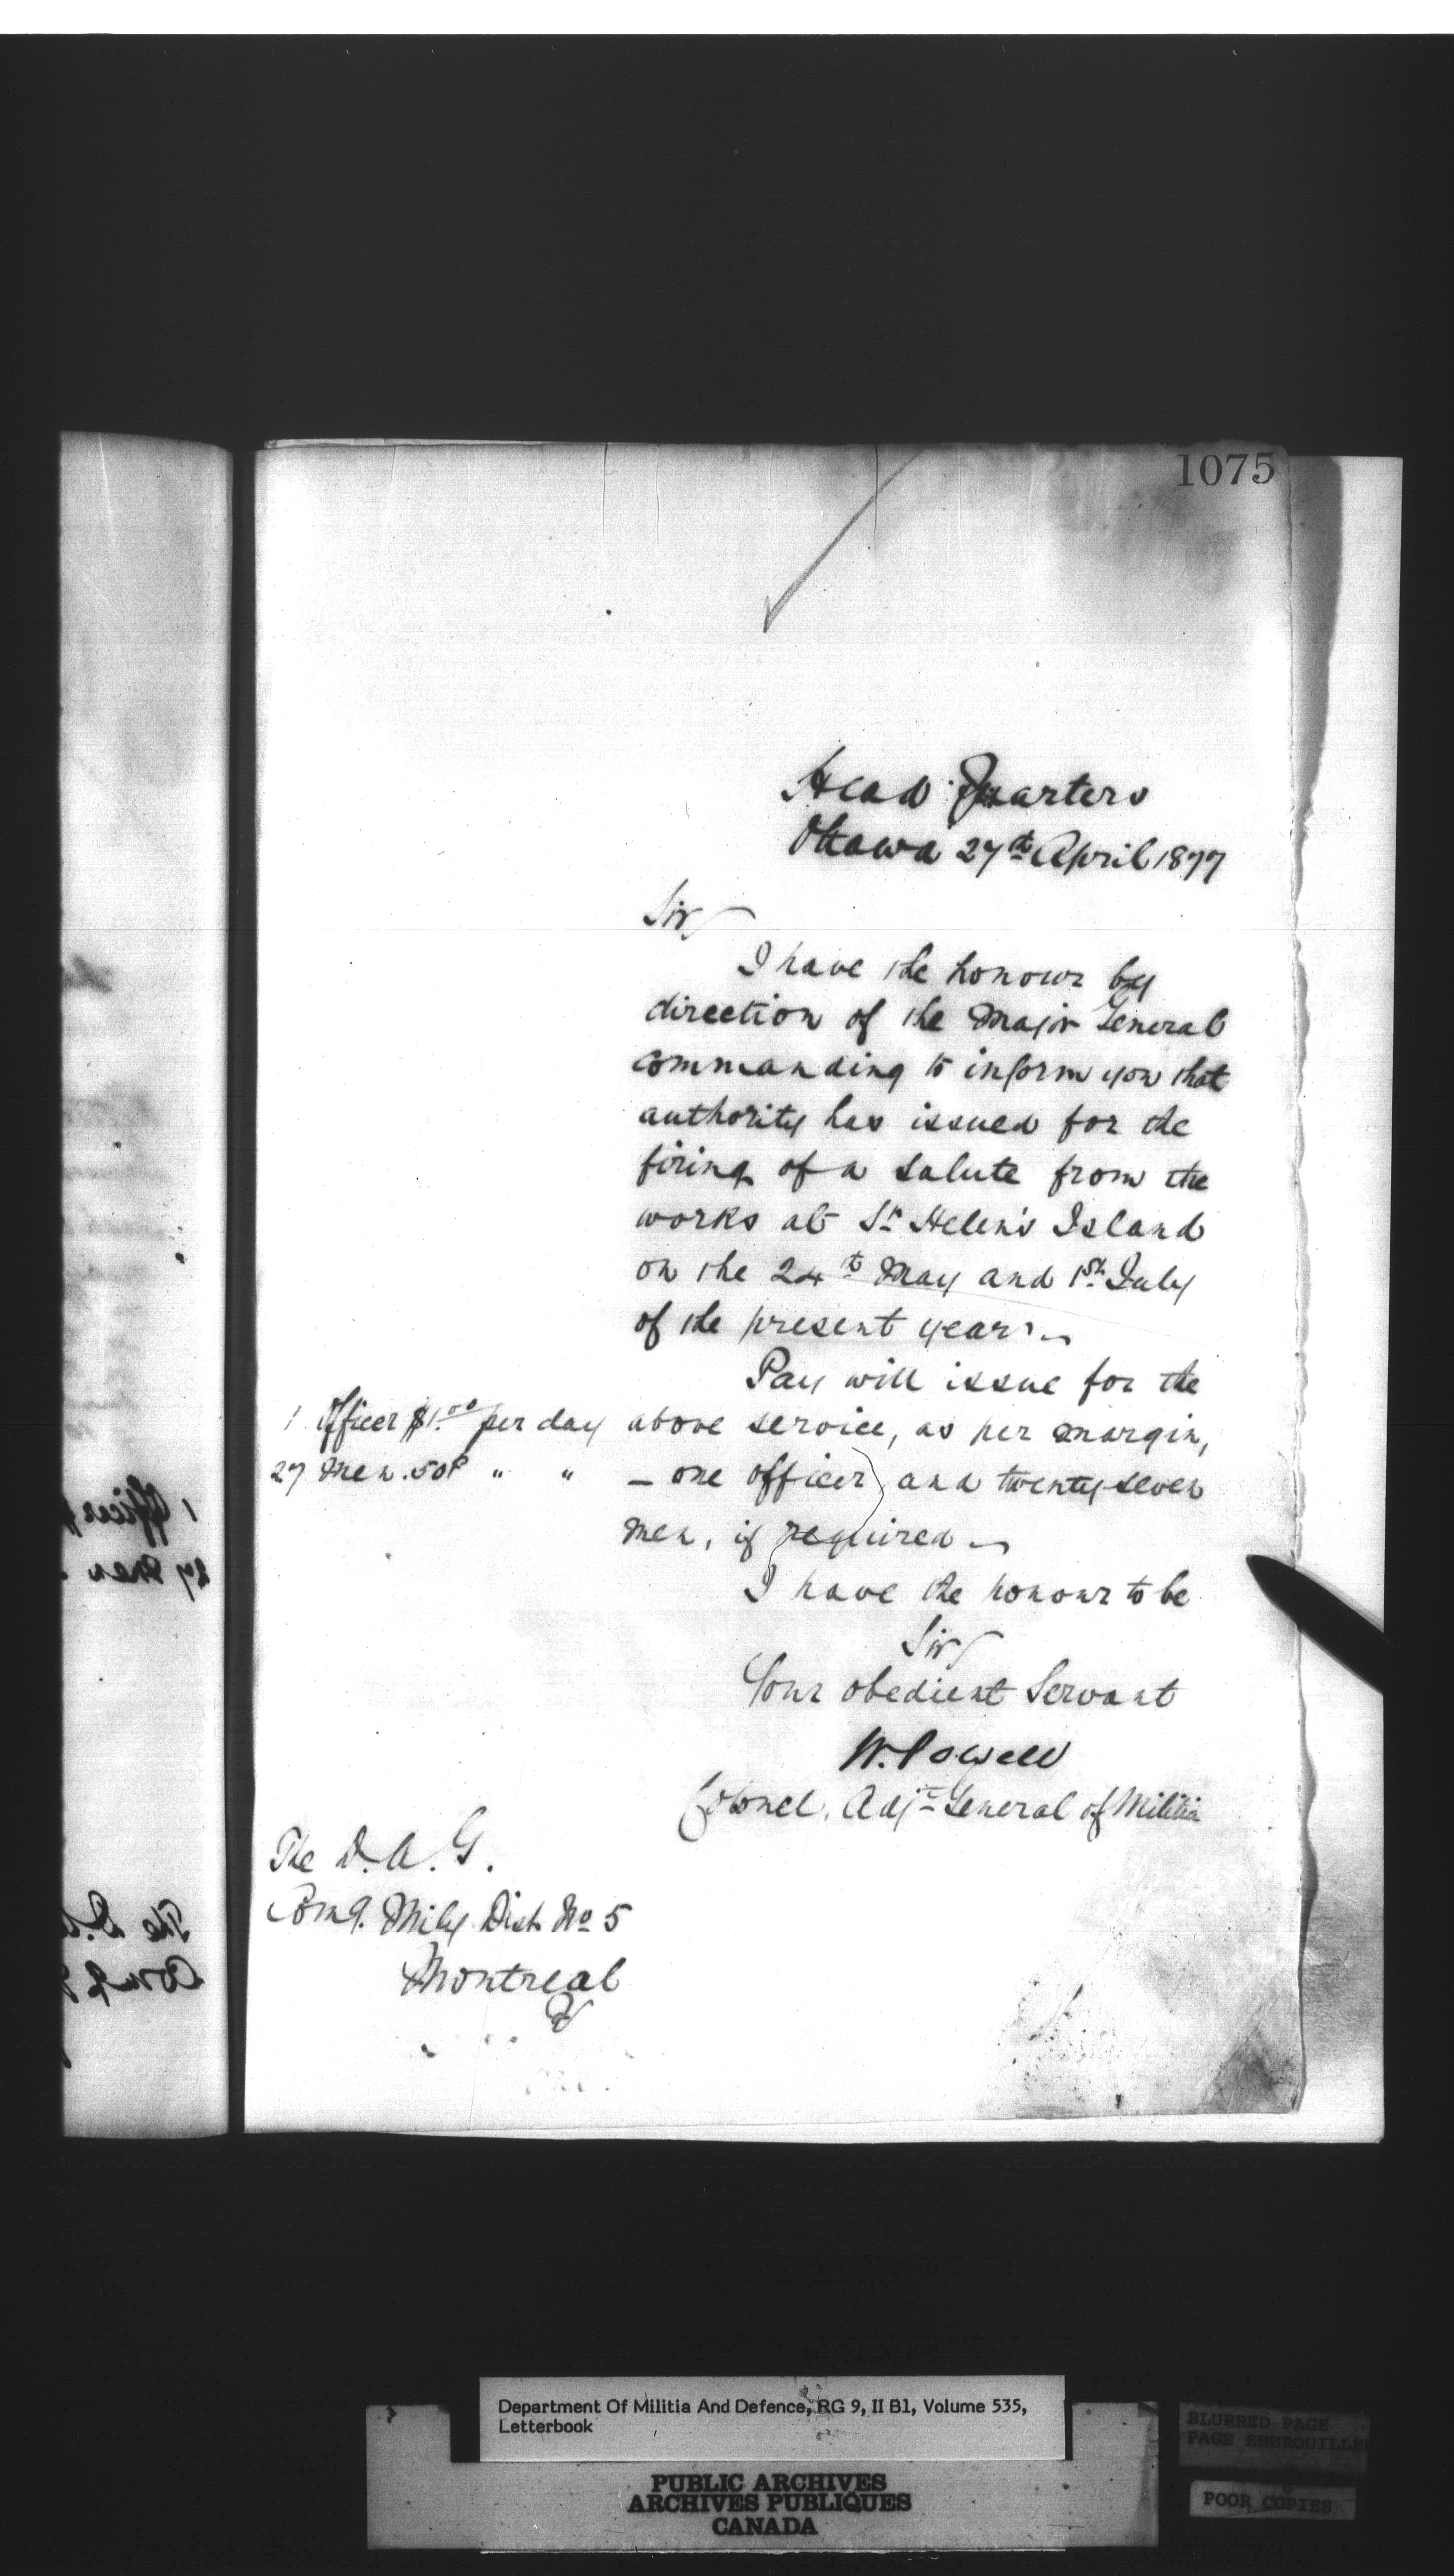 1075
Head Quarters
Ottawa 27th April 1877
Sir
I have the honour by
direction of the Major General
commanding to inform you that
authority has issued for the
firing of a salute from the
works at St Helen's Island
on the 24th May and 1st July
of the present year.
Pay will issue for the
1 Officer $1.00 per day above service, as per margin,
27 Men .50¢ " " - one officer and twenty seven
men, if required
I have the honour to be
Sir
Your obedient Servant
W. Powell
Colonel, Adjt General of Militia
The D.A.G.
Comg. Mily Dist No 5
Montreal
1 Officer
27 Men
The D.A
Comg
Department Of Militia And Defence, RG 9, II B1, Volume 535,
Letterbook
PUBLIC ARCHIVES
ARCHIVES PUBLIQUES
CANADA
BLURRED PAGE
PAGE EMBROUILLEE
POOR COPIES